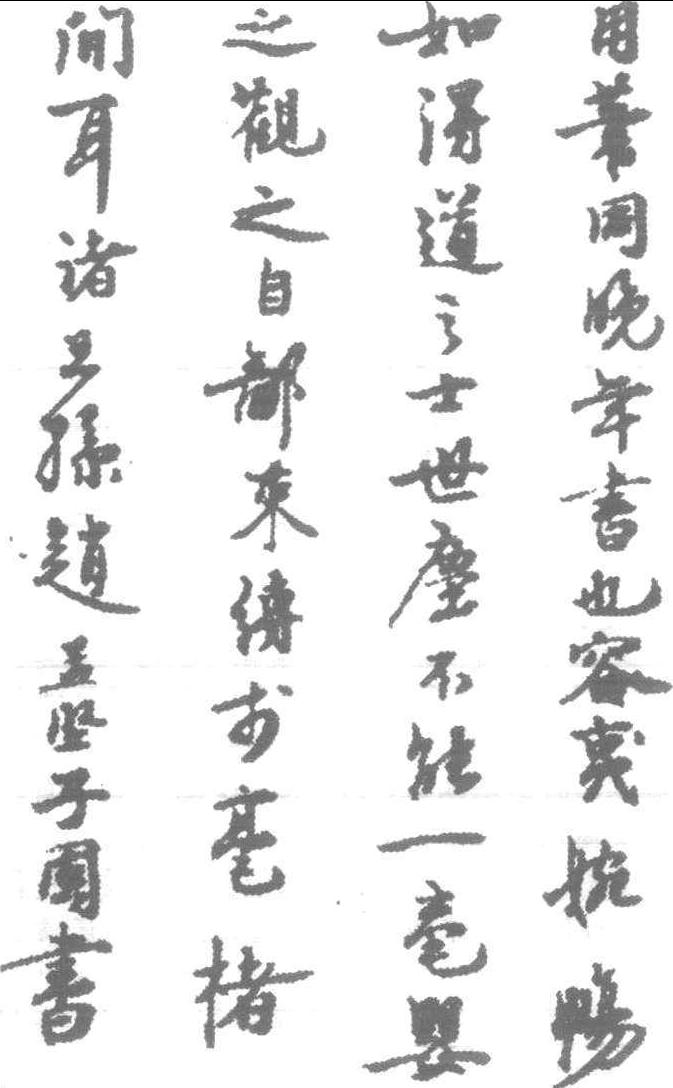 用筆同晚年書也容夷婉暢
如得道之士世塵不能一毫嬰
之觀之自鄙束縛於毫楮
間耳諸王孫趙孟堅子固書